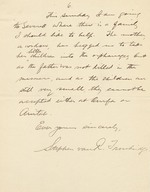 6
This Sunday I am going
to Servost where there is a family
I should like to help. The mother
a widow, has begged me to take
her children into the orphanage, but
as the father was not killed in the
manner, and as the children are
still very small, they cannot be
accepted either at Corfu or
Ever yours sincerely,
Stephen van R. Trowbridge